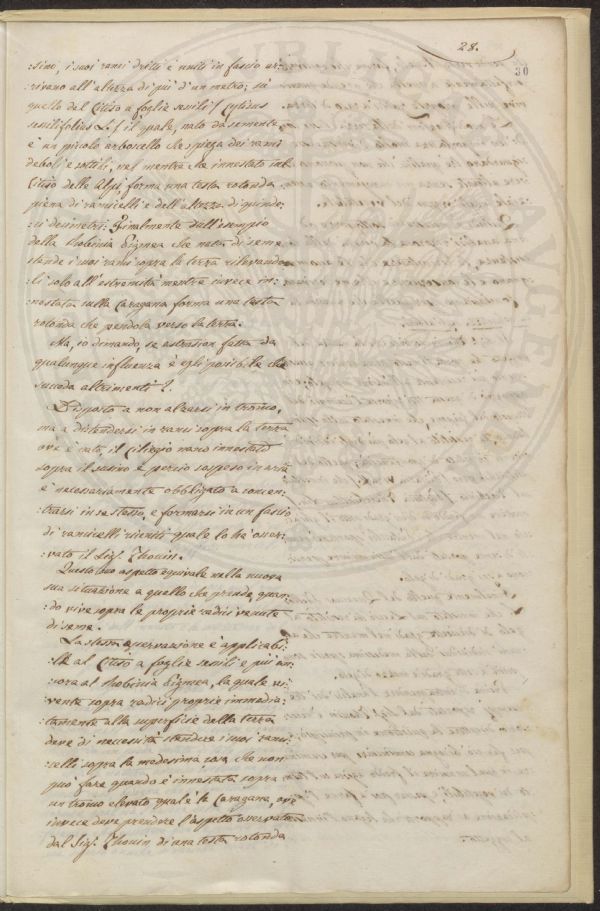 28.
30
:simi, i suoi rami dritti è uniti in fascio ar:
:rivano all'altezza di piu' d'un metro; su
quello del Citiso a foglie sessili (Cytisus
sessilifolius L.) il quale, nato da semente,
è un picolo arboscello che spiega dei rami
deboli e sottili; nel mentre che innestato sul
Citiso delle Alpi forma una testa rotonda
piena di ramicelli e dell'altezza di quinde:
:ci decimetri: Finalmente dall'esempio
della Robinia Pigmea che nata di seme
stende i suoi rami sopra la terra rilevando
:li solo all'estremità mentre invece in:
:nestata sulla Caragana forma una testa
rotonda che pendola verso la terra.
Ma, io dimando, se astrasion fatta da
qualunque influenza è egli possibile che
succeda altrimenti?
Disposto a non alzarsi in tronco,
ma a distendersi in rami sopra la terra
ove è nato, il Ciliegio nano innestato
sopra il susino è perciò sospeso in aria
è necessariamente obbligato a concen:
:trarsi in se stesso, e formarsi in un fascio
di ramicelli riuniti quale lo hà osser:
:vato il Sig. Thouin.
Questo suo aspetto equivale nella nuova
sua situazione a quello che prende quan:
:do vive sopra le proprie radici venute
di seme.
La stessa osservazione è applicabi:
:le al Citiso a foglie sessili e più an:
:cora al Robinia Pigmea, la quale vi:
:vente sopra radici proprie immedia:
:tamente alla superficie della terra
deve di necessità stendere i suoi rami:
:celli sopra la medesima cosa che non
può fare quando è innestata sopra
un tronco elevato qual'è la Caragana, ove
invece deve prendere l'aspetto osservato
dal Sig. Thouin di una testa rotonda